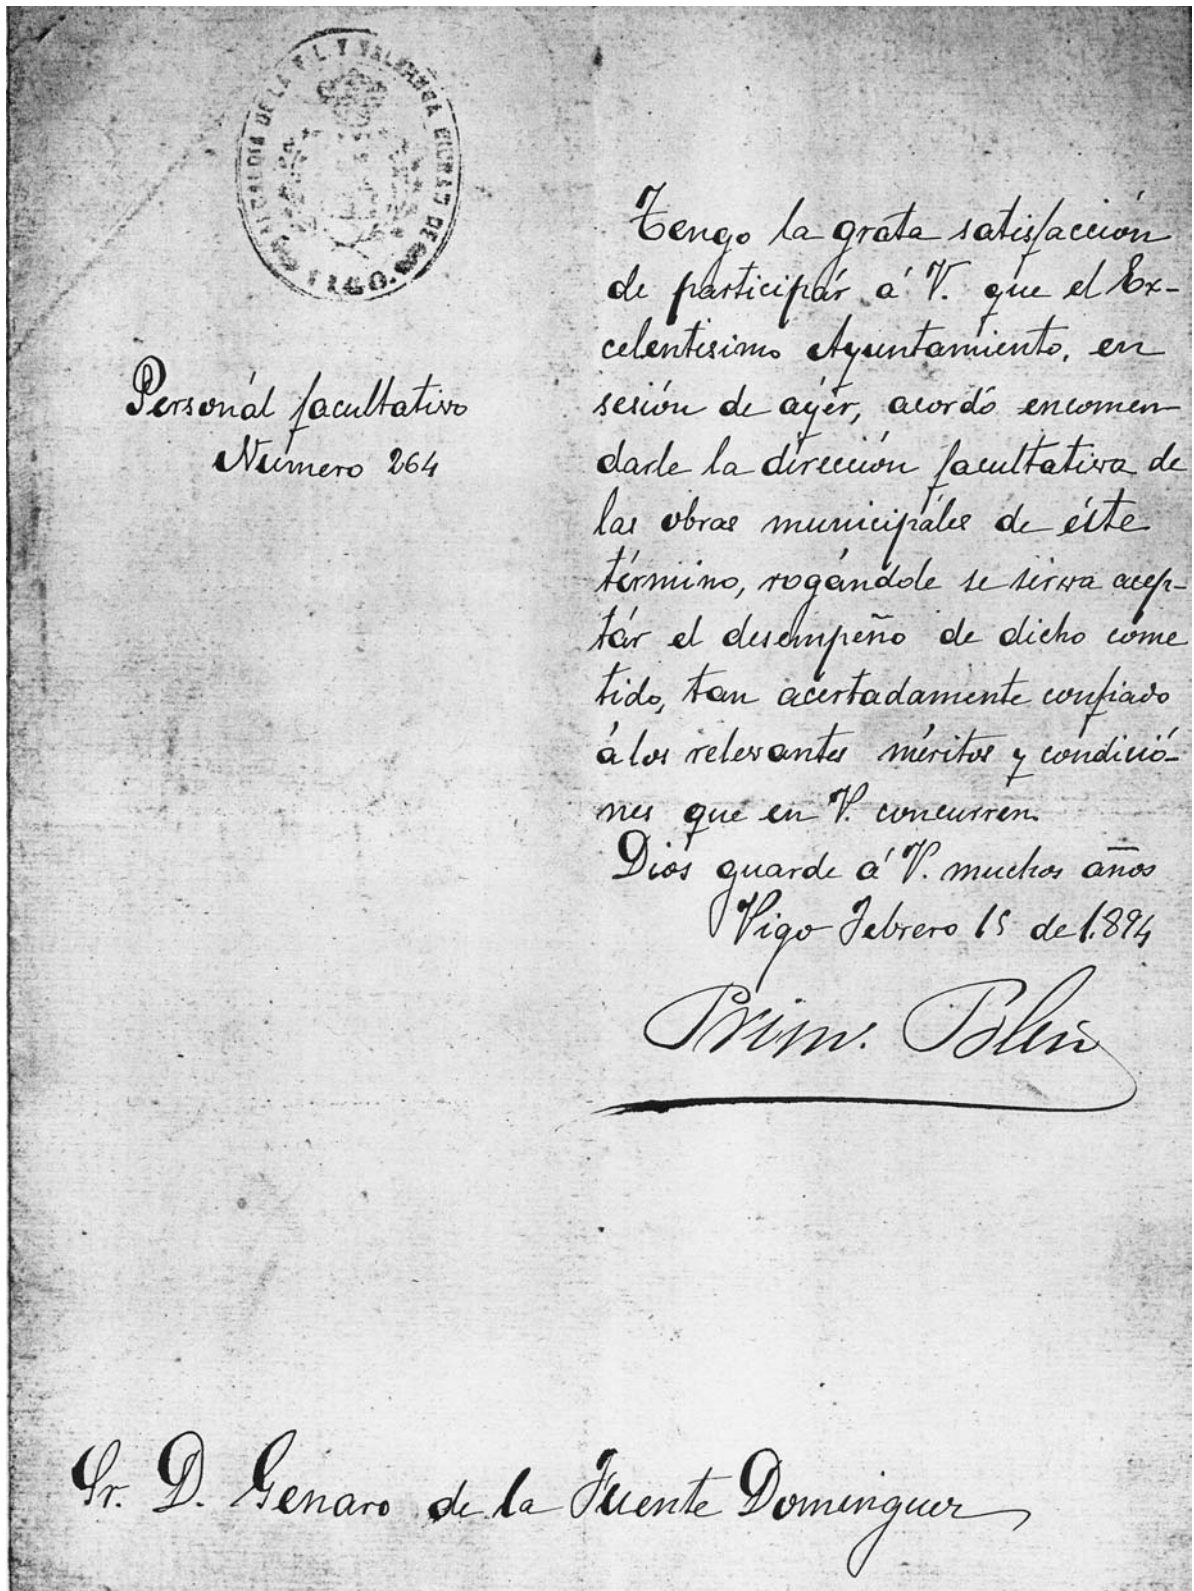 ALCALDIA DE LA F. L. Y VALEROSA CIUDAD DE
VIGO.
Personál facultativo
Número 264
Tengo la grata satisfacción
de participár á V. que el Ex-
celentisimo Ayuntamiento, en
sesión de ayér, acordó encomen
darle la dirección facultativa de
las obras municipáles de éste
término, rogándole se sirva acep-
tár el desempeño de dicho come
tido, tan acertadamente confiado
á los relevantes méritos y condició-
nes que en V. concurren.
Dios guarde á V. muchos años
Vigo Febrero 15 de 1.894
Sr. D. Genaro de la Fuente Dominguez